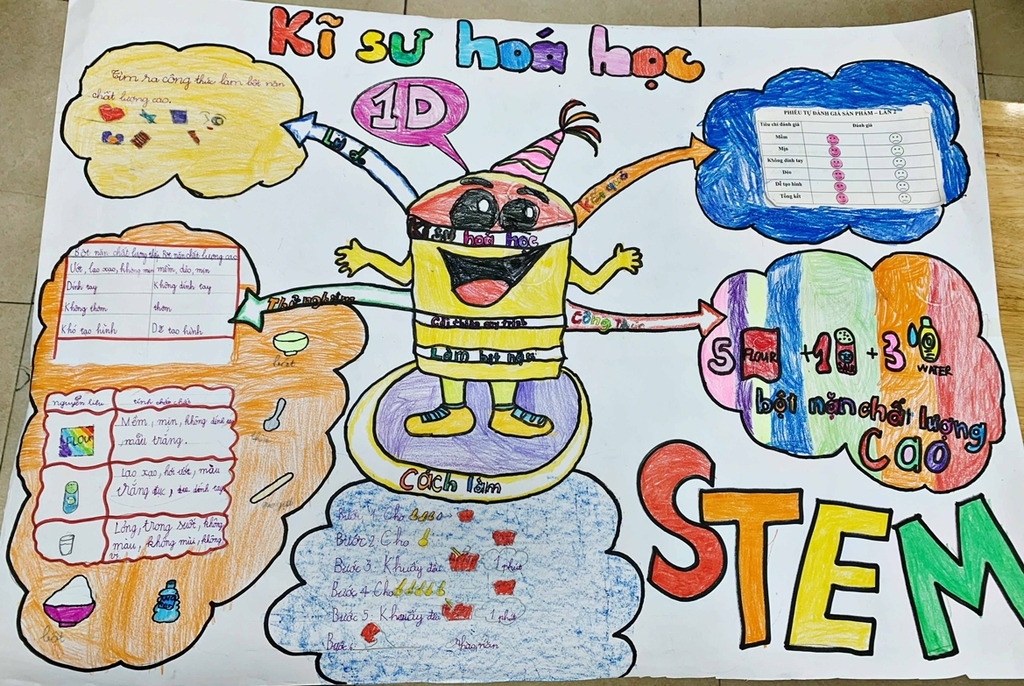 Kĩ sư hoá học
1D
Tìm ra công thức làm bột nặn
chất lượng cao.
Lý do
Kết quả
PHIẾU TỰ ĐÁNH GIÁ SẢN PHẨM – LẦN 2
Tiêu chí đánh giá
Đánh giá
Mềm
Mịn
Không dính tay
Dẻo
Dễ tạo hình
Tổng kết
Kĩ sư hoá học
làm bột nặn
Thử nghiệm
Bột nặn chất lượng thấp
Bột nặn chất lượng cao
Ướt, lạo xạo, không mịn
mềm, dẻo, mịn
Dính tay
Không dính tay
Không thơm
thơm
Khó tạo hình
Dễ tạo hình
nguyên liệu
tính chất
FLOUR
Mềm, mịn, không dính tay
màu trắng.
Lạo xạo, hơi ướt, màu
trắng đục, dính tay
Lỏng, trong suốt, không
màu, không mùi, không
vị
bột
Công thức
5 FLOUR + 1 + 3 WATER
bột nặn chất lượng
Cao
Cách làm
Bước 1 Cho
Bước 2 Cho
Bước 3: Khuấy đều 1 phút
Bước 4 Cho
Bước 5 Khuấy đều 1 phút
Bước nhào nặn
STEM